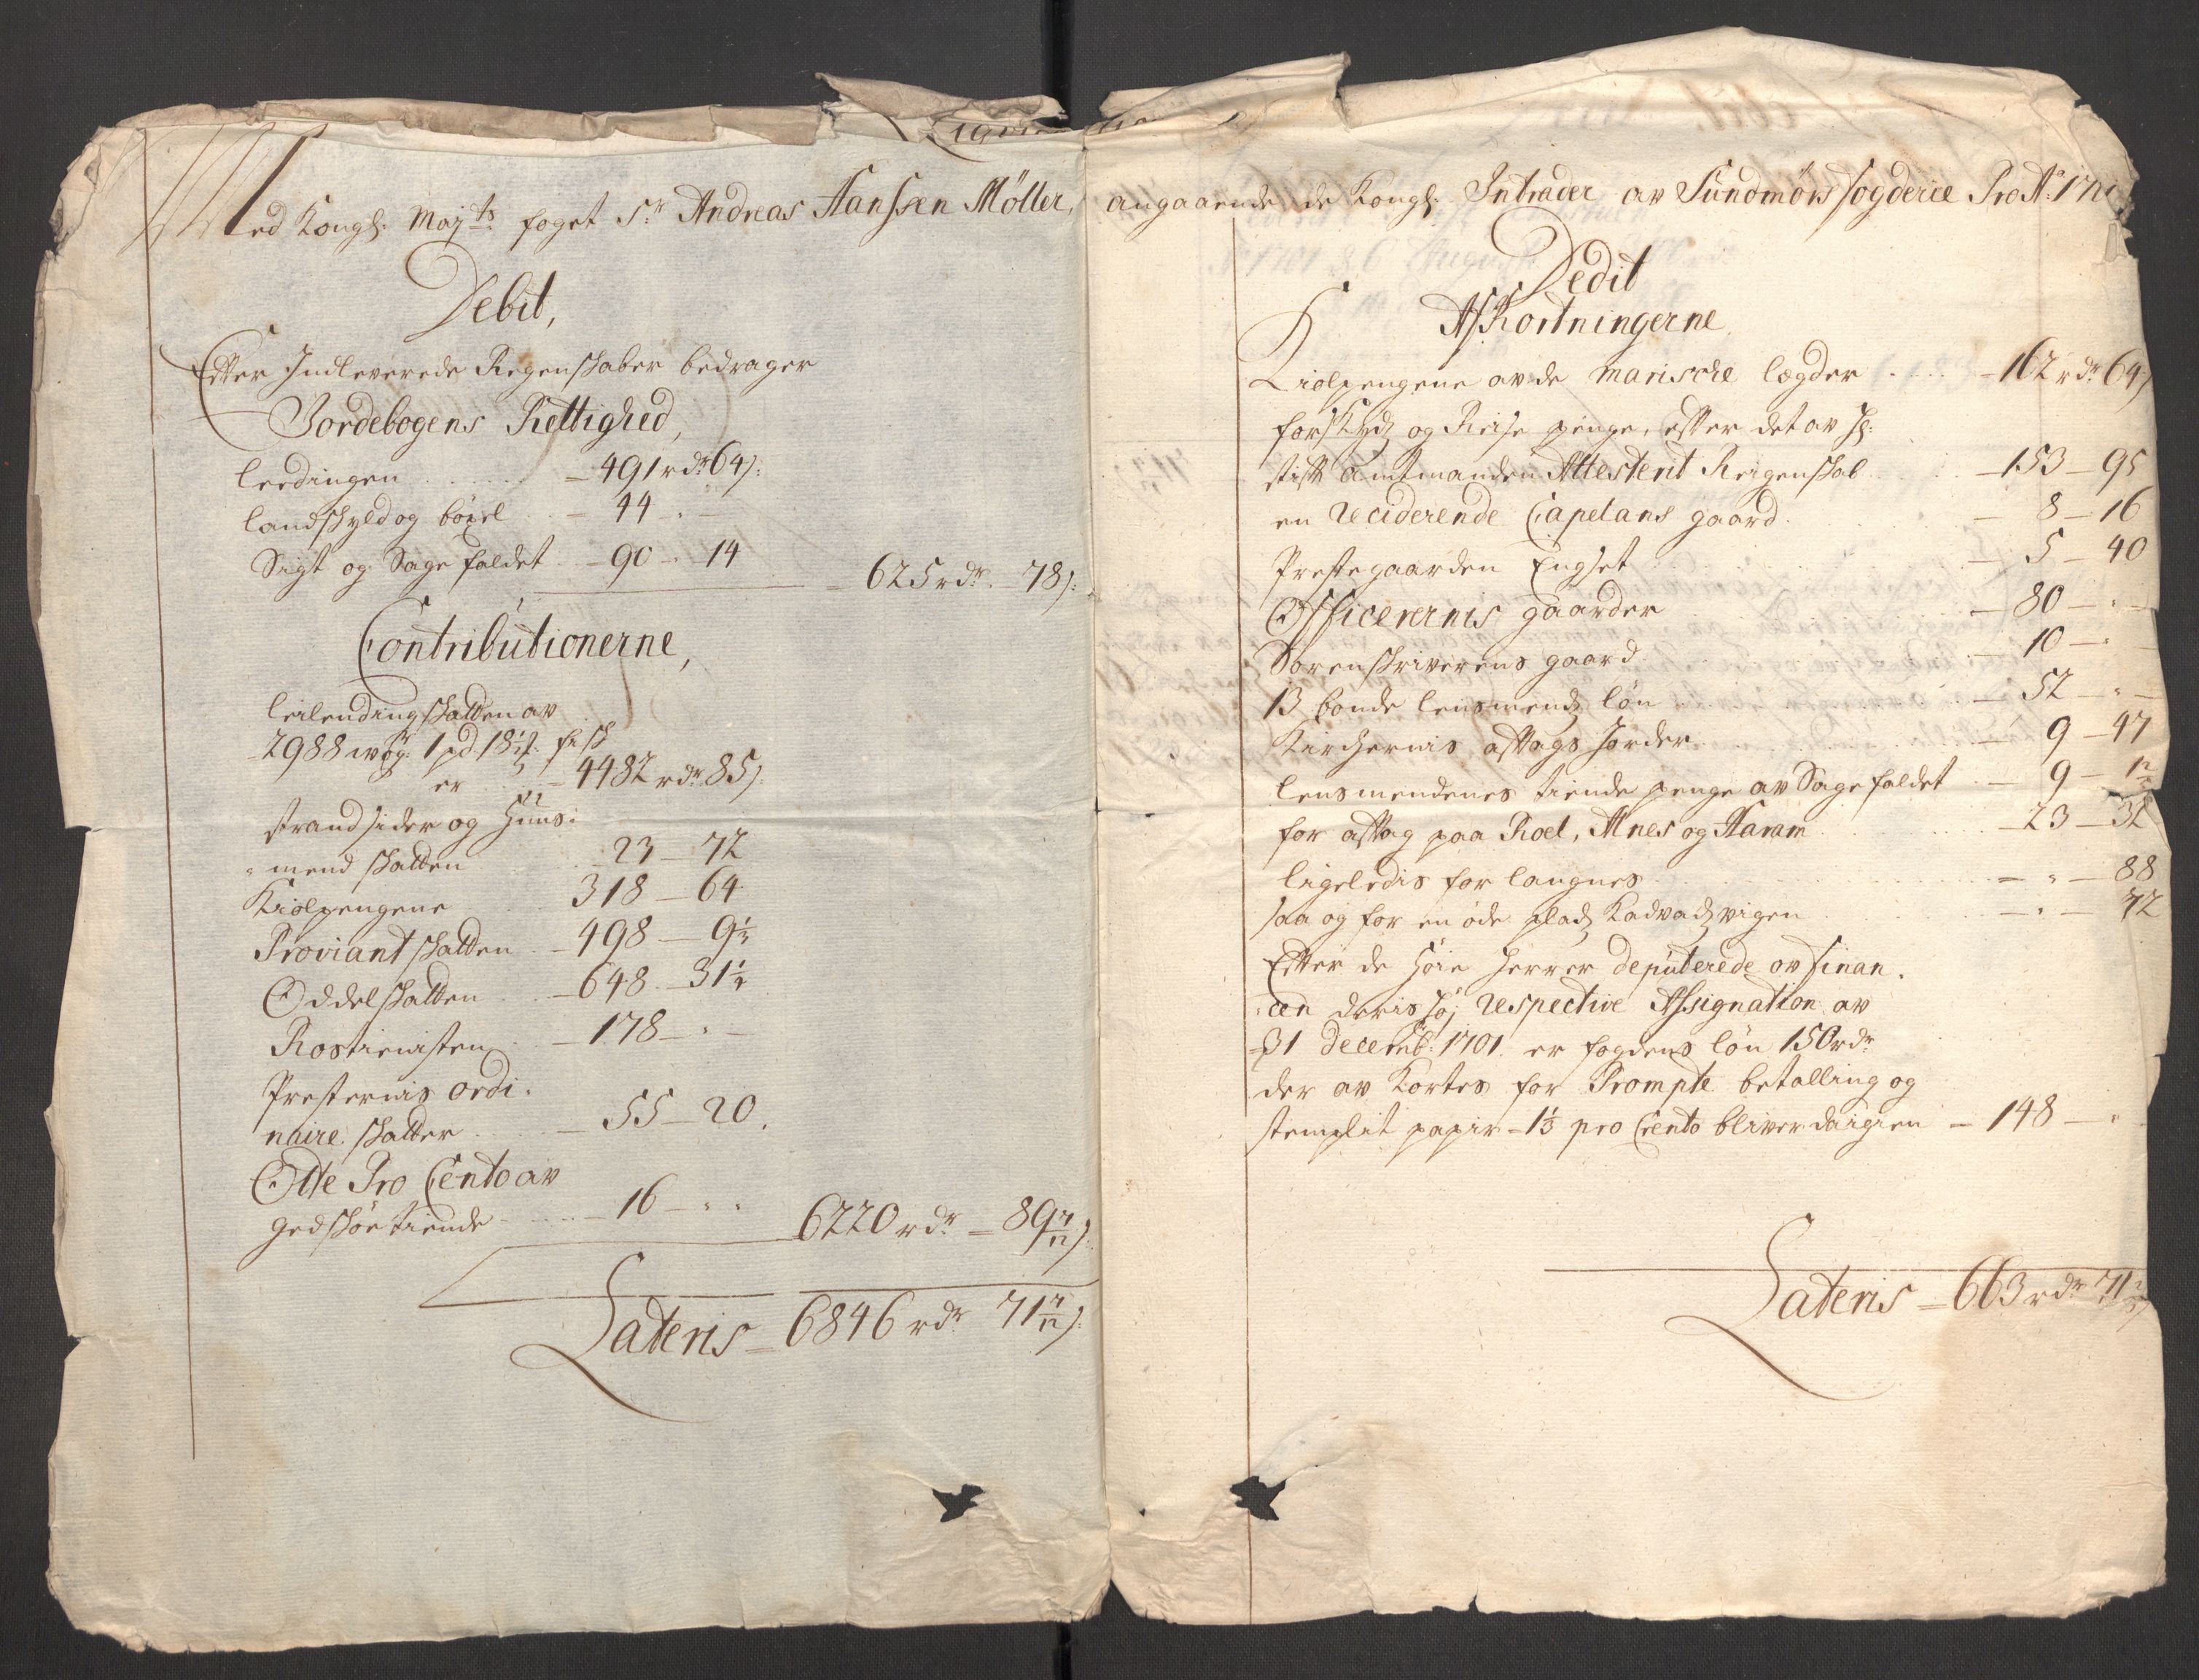 Med Kongl: Maÿts: foget Sr: Andreas Hanssen Möller,
Debit,
Efter Indleverede Regenskaber bedrager
Jordebogens Rettighed,
leedingen - 491 rdr 64 s:
landskyld og böxel - 44 - "
Sigt og Sagefaldet - 90 - 14
625 rdr. 78 s:
Contributionerne,
leilendingskatten av
2988 wog: 1 pd. 18 fisk
er - 4482 rdr 85 s.
strandsider og Huus:
mend skatten - 23 - 72
Kiolpengene 318 - 64
Proviant skatten - 498 - 9 1/3
Oddelskatten - 648 - 31 1/4
Rostienisten - 178 - "
Presternis ordi:
naire skatter - 55 - 20.
Otte Pro Cento av
gedskör tiende - 16 - " "
6220 rdr - 89 7/12 s:
Lateris = 6846 rdr 71 7/12 s:
angaaende de Kongl: Intrader av Sundmörs fogderie Pro Ao: 1701
Dedit
Afkortningerne
Kiolpengene av de marische lægder - 162 rdr 64 s
forskydz og Reise penge, efter det av H:
stift amtmanden Attesterit Reigenskab - 153 - 95
en Reciderende Capelans gaard - 8 - 16
Prestegaarden Engset - 5 - 40
Officerernis gaarder - 80 - "
Sorenskriverens gaard - 10 - "
13 bonde lensmendz lön - 52 - "
Kirchernis aftags Jorder - 9 - 47
lensmendenes tiende penge av Sagefaldet - 9 - 1 2/5
for aftag paa Roel, Alnes og Haram - 23 - 32
ligeledis for langnes - " - 88
saa og for en öde pladz Kadvadzvigen - " - 72
Efter de höie Herrer deputerede ov finan:
:cen deris höj respective Assignation av
31 Decemb: 1701. er fogdens lön 150 rdr
der av Kortes for Prompte betalling og
stemplit papir - 1 1/3 pro Cento bliver daigien - 148 - "
Lateris = 663 rdr 71 2/5 s